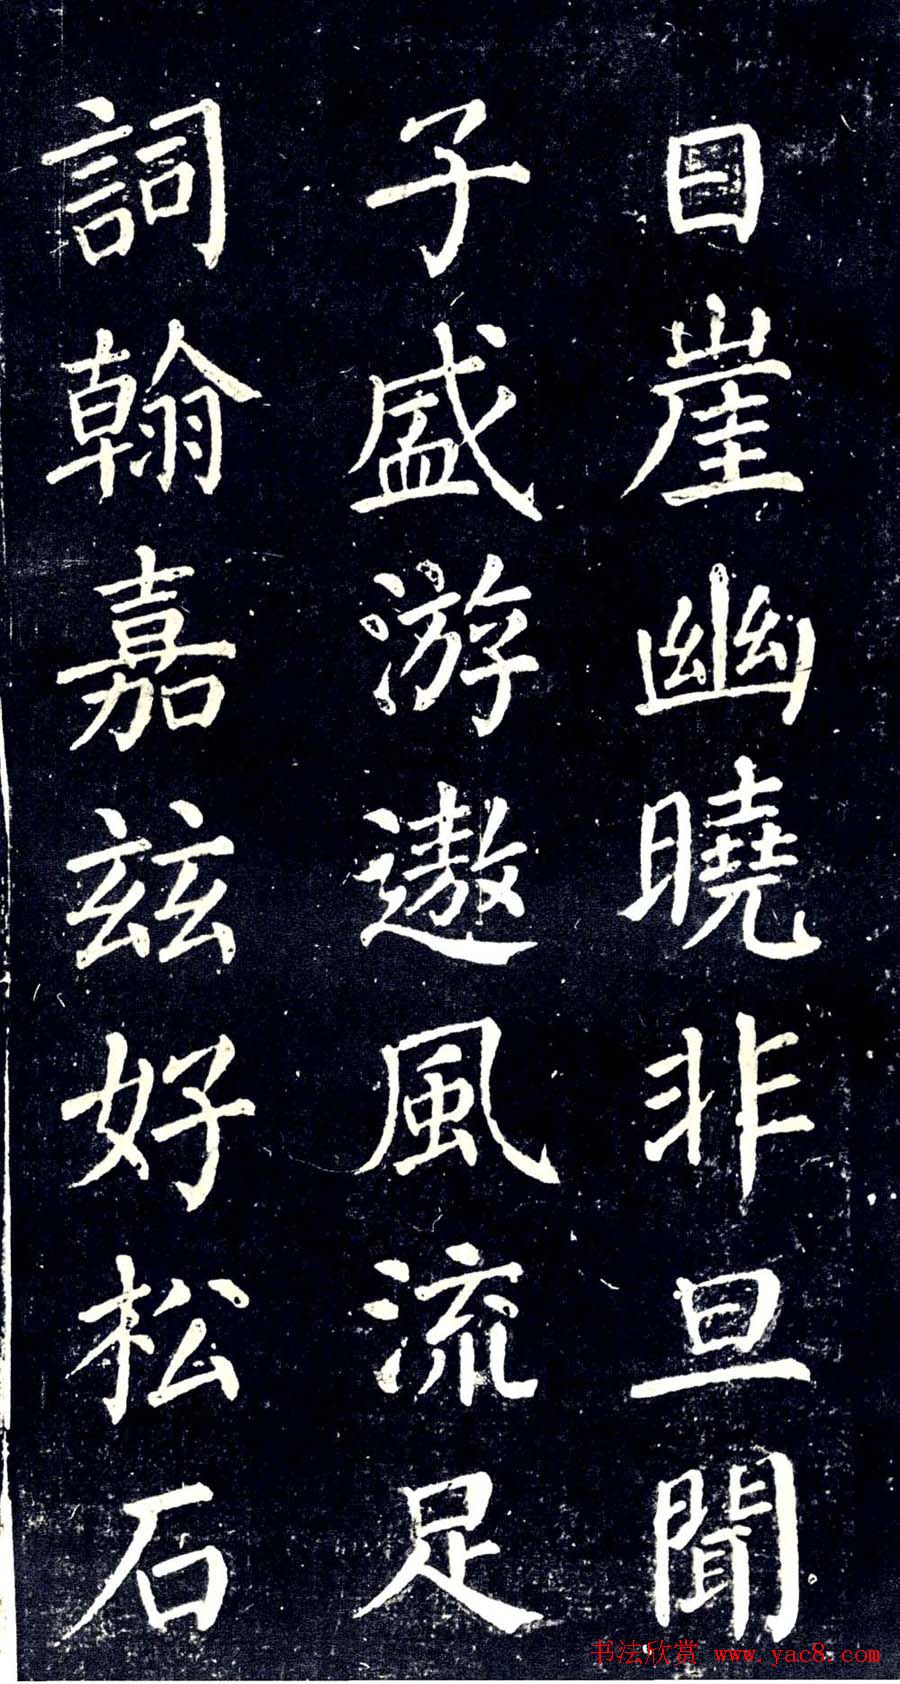 日崖幽曉非旦聞
子盛游遨風流足
詞翰嘉兹好松石
书法欣赏 www.yac8.com